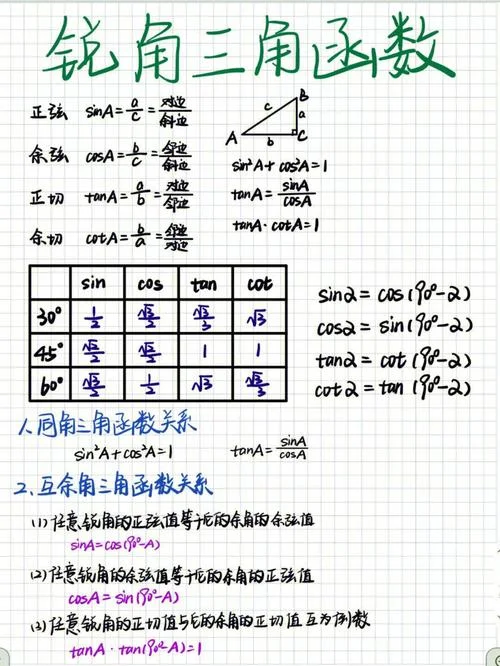 锐角三角函数
正弦 sinA=a/c=对边/斜边
余弦 cosA=b/c=邻边/斜边
正切 tanA=a/b=对边/邻边
余切 cotA=b/a=邻边/对边
B
c
a
A
b
C
sin²A+cos²A=1
tanA=sinA/cosA
tanA·cotA=1
sin cos tan cot
30° 1/2 √3/2 √3/3 √3
45° √2/2 √2/2 1 1
60° √3/2 1/2 √3 √3/3
sin2=cos(90°-2)
cos2=sin(90°-2)
tan2=cot(90°-2)
cot2=tan(90°-2)
1.同角三角函数关系
sin²A+cos²A=1 tanA=sinA/cosA
2.互余角三角函数关系
(1)任意锐角的正弦值等于它的余角的余弦值
sinA=cos(90°-A)
(2)任意锐角的余弦值等于它的余角的正弦值
cosA=sin(90°-A)
(3)任意锐角的正切值与它的余角的正切值互为倒数
tanA·tan(90°-A)=1